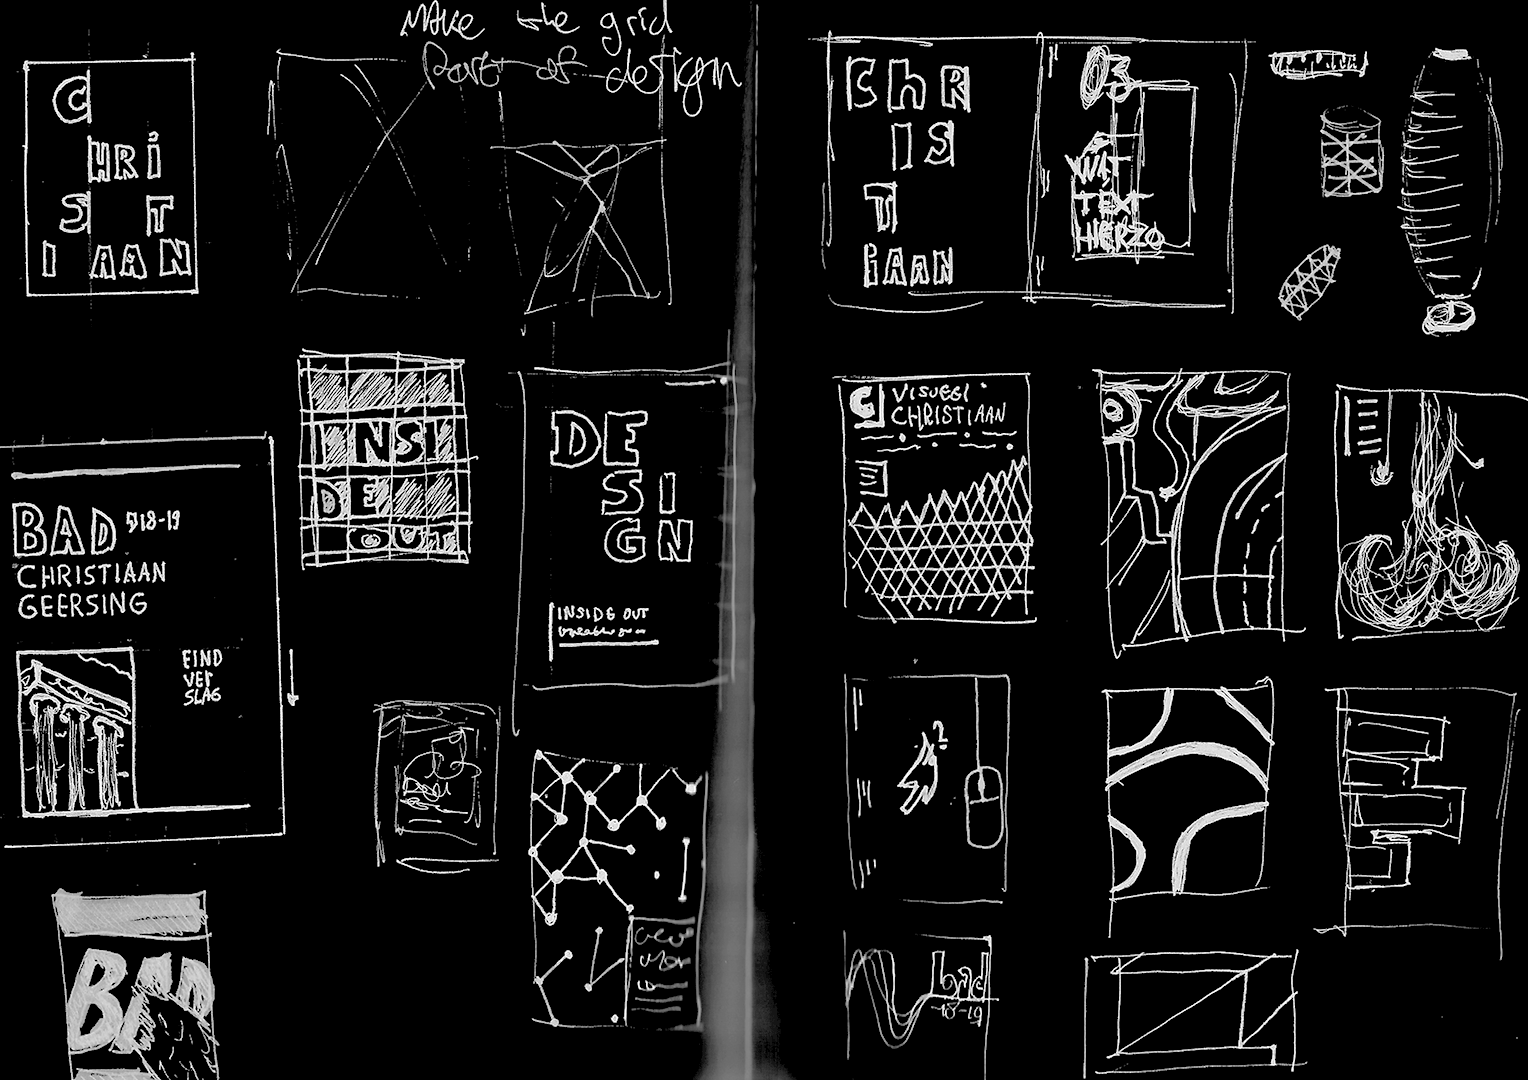 Make the grid
Part of design
C
HRi
S T
I AAN
INSI
DE
OUT
DE
SI
GN
INSIDE OUT
BAD '18-19
CHRISTIAAN
GEERSING
EIND
VER
SLAG
BAD
ChR
IS
T
iAAN
WAT
TEXT
HIERZO
C
CHRISTIAAN
2
bad
-18-19